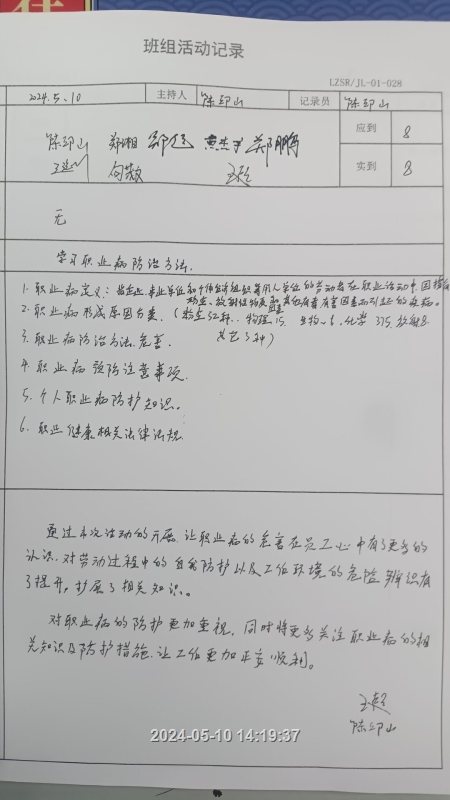 班组活动记录
LZSR/JL-01-028
2024.5.10 主持人 陈印山 记录员 陈印山
陈印山 郑湘 郑鹏 应到 8
王超 实到 8
无
学习职业病防治方法.
1. 职业病定义: 指企业事业单位和个体经济组织等用人单位的劳动者在职业活动中,因接触
粉尘、放射性物质和其他有毒有害因素而引起的疾病。
2. 职业病形成原因分类. (粉尘52种. 物理15. 生物6. 化学375. 放射8
其它3种)
3. 职业病防治方法.危害.
4. 职业病预防注意事项.
5. 个人职业病防护知识。
6. 职业健康相关法律法规
通过本次活动的开展,让职业病的危害在员工心中有了更多的
认识.对劳动过程中的自我防护以及工作环境的危险辨识有
了提升,扩展了相关知识。
对职业病的防护更加重视.同时将更多关注职业病的相
关知识及防护措施.让工作更加平安顺利。
王超
陈印山
2024-05-10 14:19:37